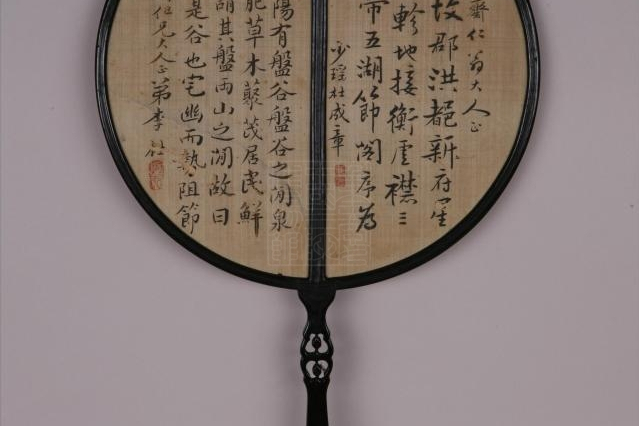 齋仁翁大人正
故郡洪都新府星
軫地接衡廬襟三
帶五湖節閣序為
杜成章
陽有盤谷盤谷之間泉
肥草木藂茂居民鮮
謂其盤兩山之間故曰
是谷也宅幽而埶阻節
伯兄大人正弟李